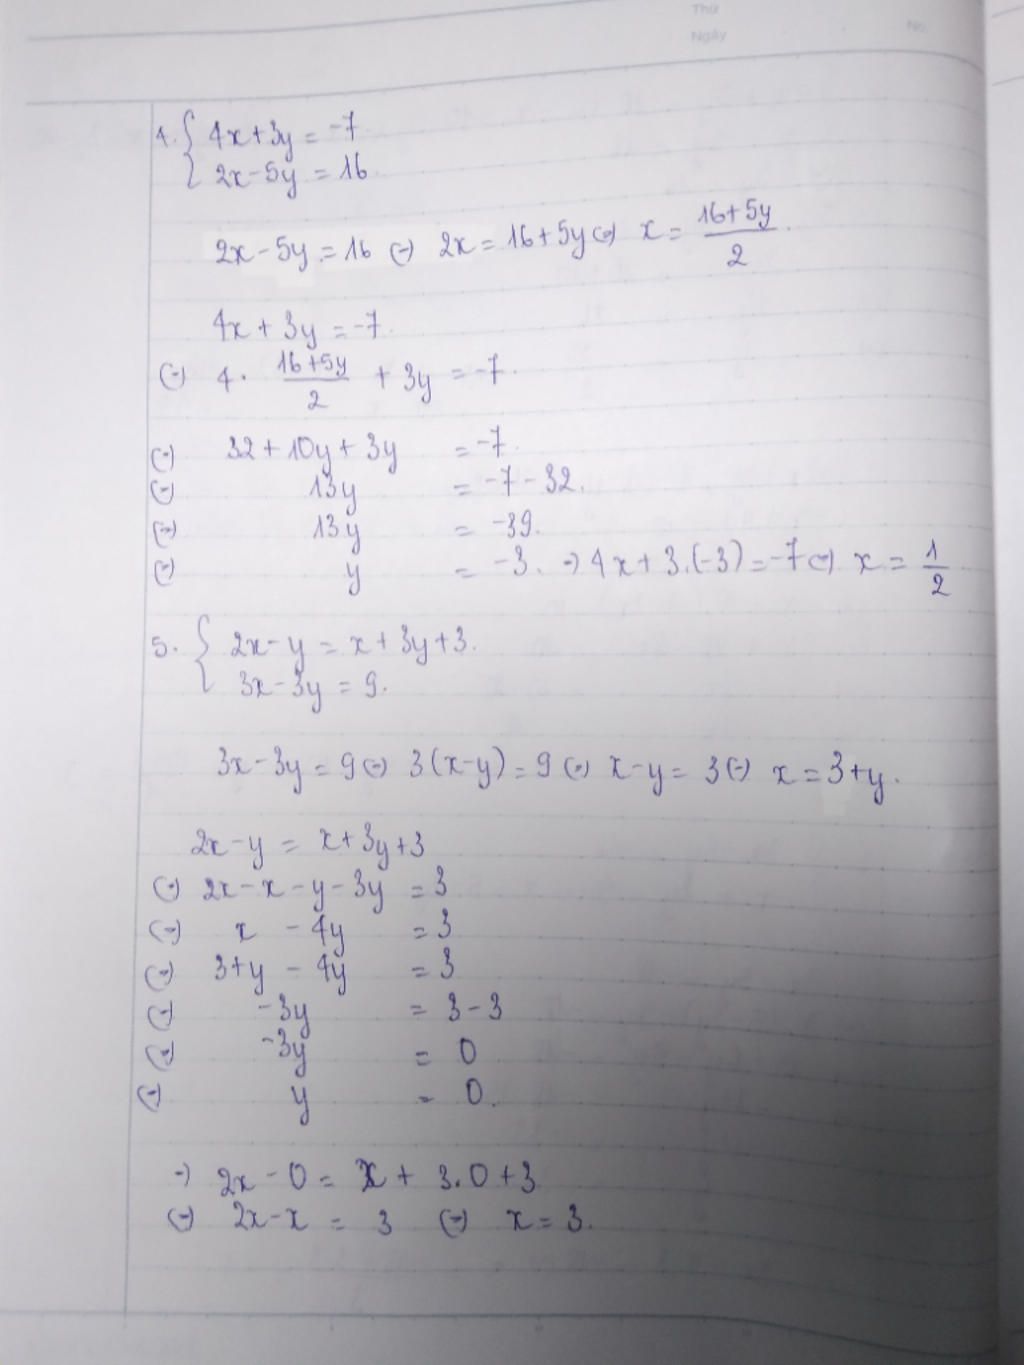 Thứ
Ngày
No.
4. { 4x+3y = -7.
2x-5y = 16.
2x-5y = 16 (=) 2x = 16+5y (=) x = (16+5y)/2.
4x + 3y = -7.
(=) 4. (16+5y)/2 + 3y = -7.
(=) 32 + 10y + 3y = -7.
(=) 13y = -7 - 32.
(=) 13y = -39.
(=) y = -3. =) 4x + 3.(-3) = -7 (=) x = 1/2
5. { 2x - y = x + 3y + 3.
3x - 3y = 9.
3x - 3y = 9 (=) 3(x-y) = 9 (=) x-y = 3 (=) x = 3+y.
2x - y = x + 3y + 3
(=) 2x - x - y - 3y = 3
(=) x - 4y = 3
(=) 3+y - 4y = 3
(=) -3y = 3 - 3
(=) -3y = 0
(=) y = 0.
=) 2x - 0 = x + 3.0 + 3
(=) 2x - x = 3 (=) x = 3.